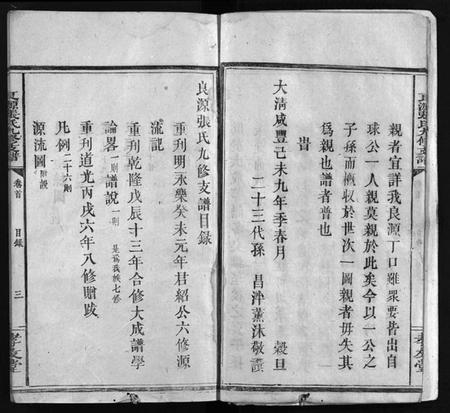 親者宜詳我良源丁口雖眾要皆出自
球公一人親莫親於此矣今以一公之
子孫而權收於世次一圖親者毋失其
為親也譜者普也
旹
大清咸豐己未九年季春月 穀旦
二十三代孫 昌泮薰沐敬譔
良源張氏九修支譜目錄
重刊明永樂癸未元年君紹公六修源
流記
重刊乾隆戊辰十三年合修大成譜學
論畧一則譜說一則 是為我族七修
重刊道光丙戌六年八修贈跋
凡例二十六則
源流圖附說
良源張氏九修支譜
卷首 目錄 三
孝友堂